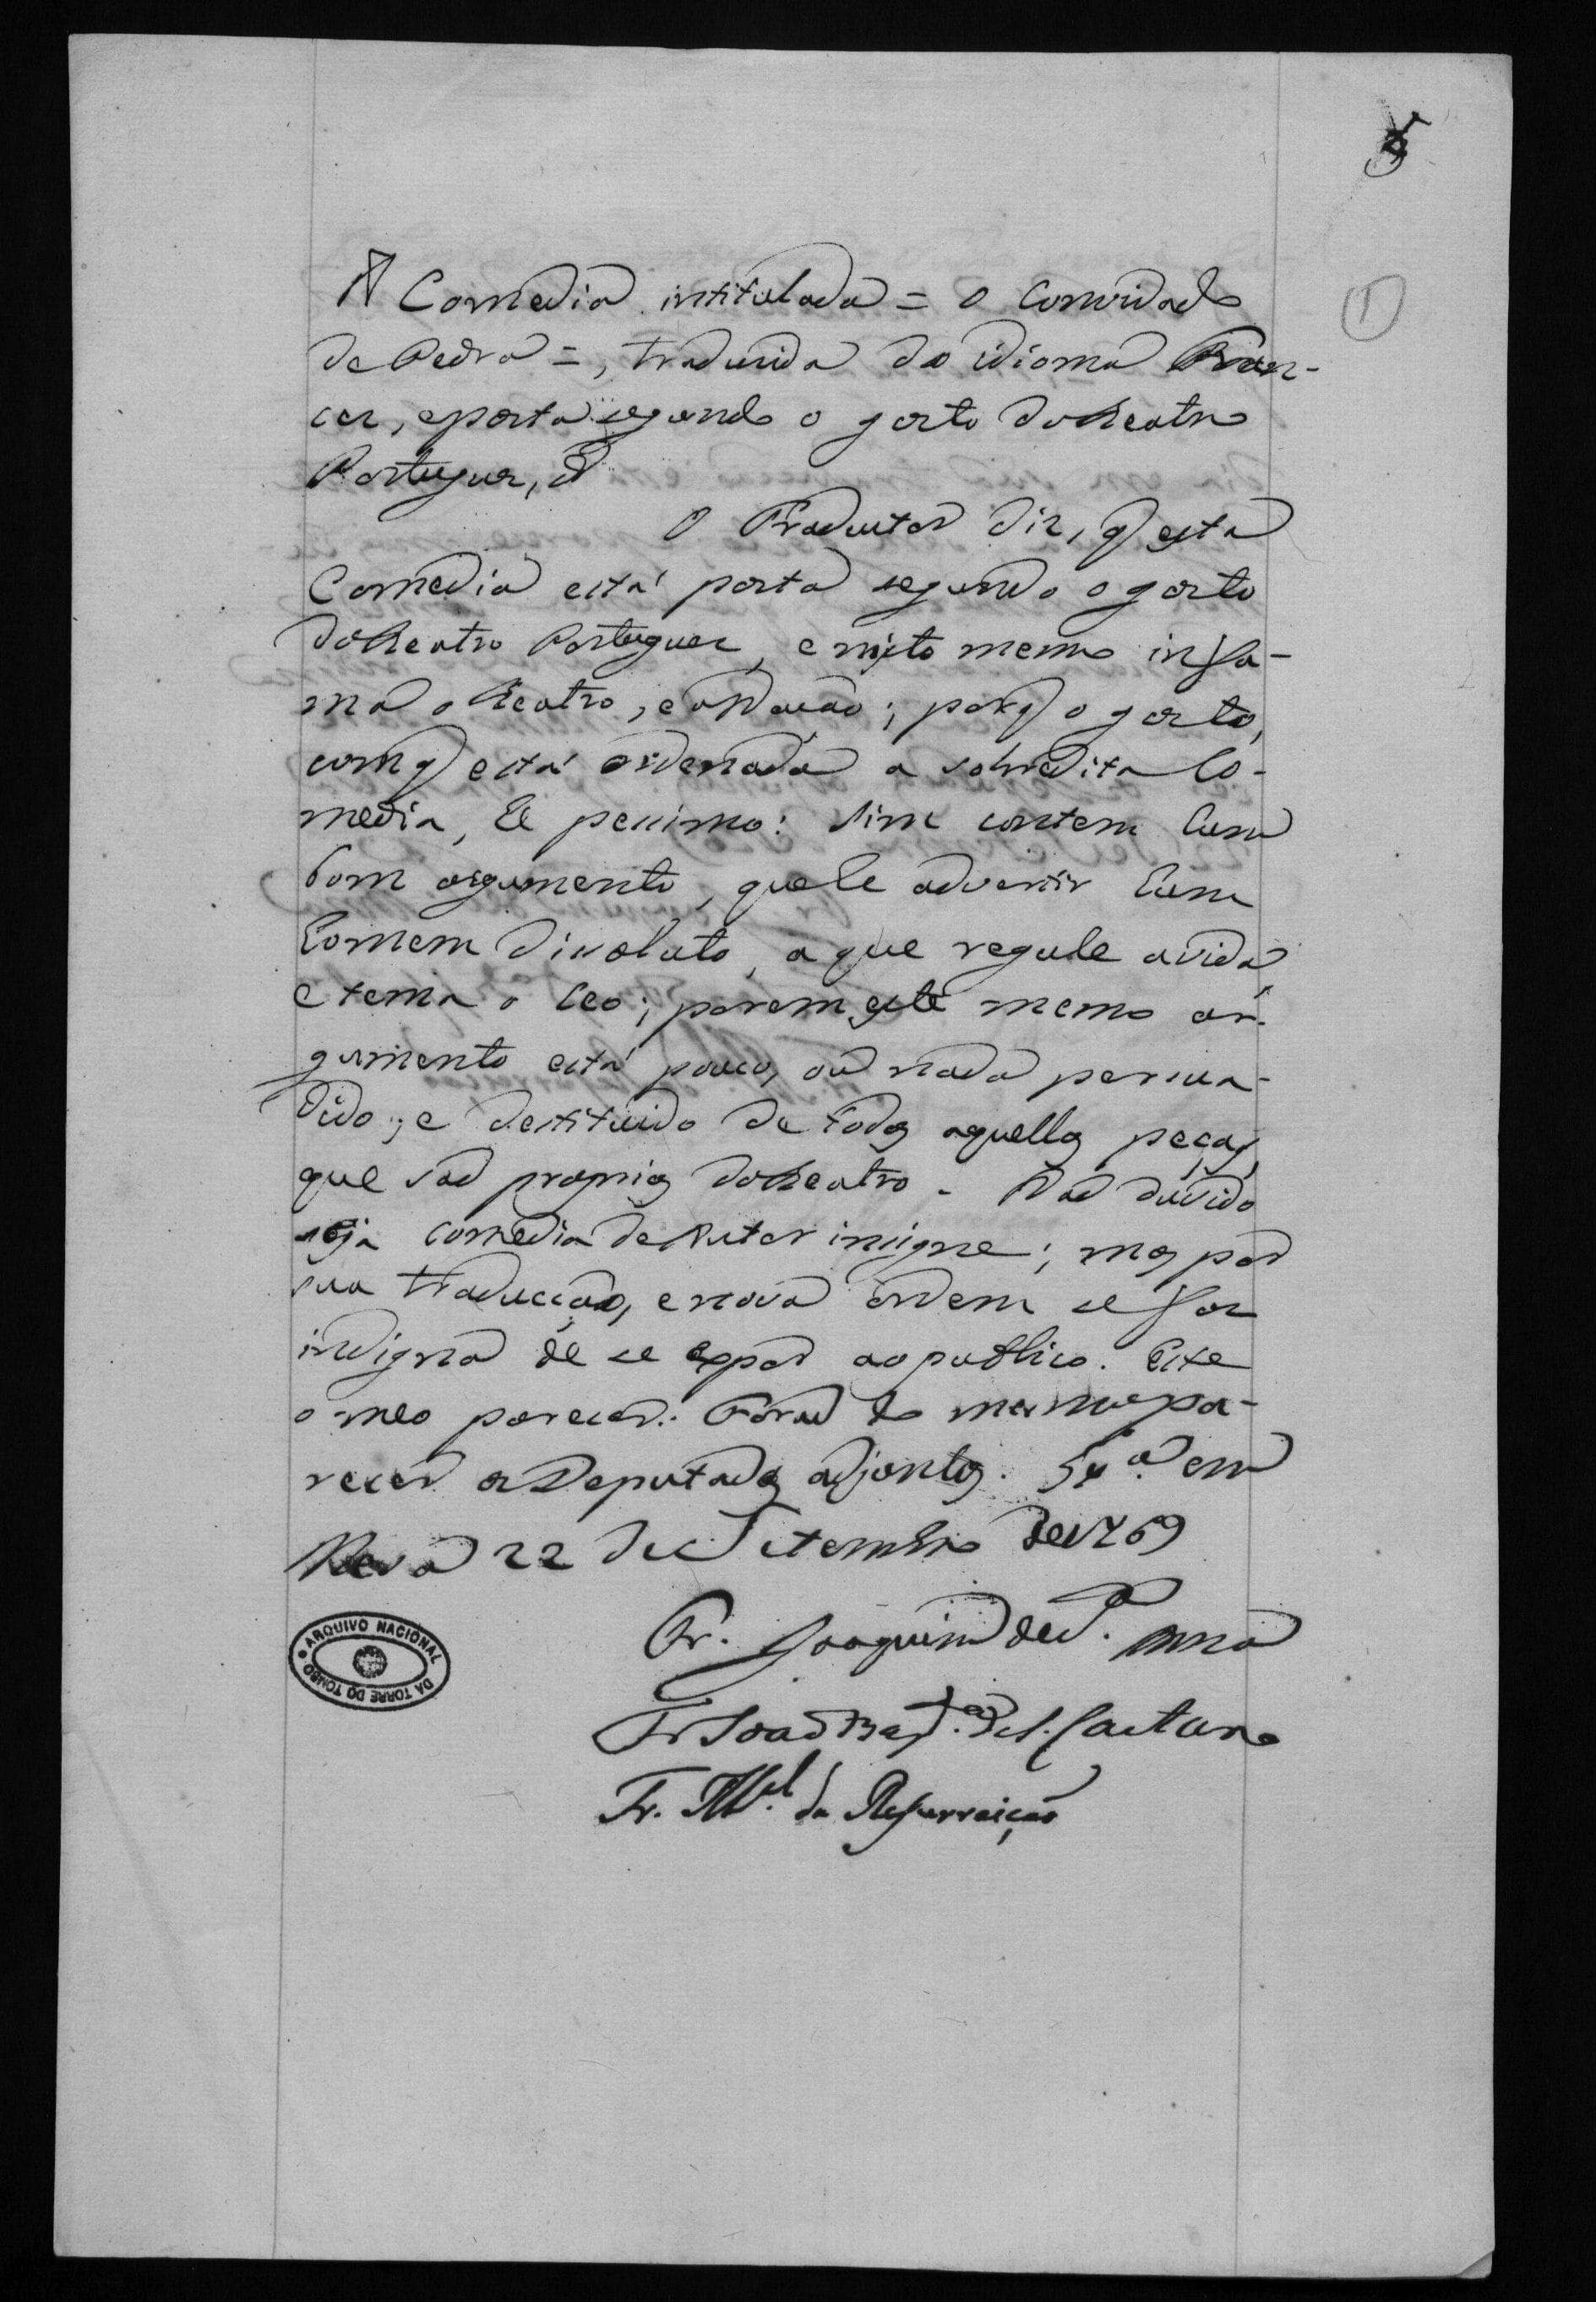 5
1
A Comedia intitulada = O Convidado
de Pedra =, traduzida do idioma Fran-
cez, eposta segundo o gosto doTheatro
Portuguez, &
O Traductor diz, q esta
Comedia está posta segundo o gosto
doTheatro Portuguez, e nisto mesmo infa-
ma o Theatro, e a Nação; porq o gosto,
comq está ordenada a sobredita Co-
media, he pessimo: Sim contem hum
bom argumento, que he advertir hum
homem dissoluto, a que regule avida
e tema o Ceo; porem este mesmo ar-
gumento está pouco, ou nada persua-
dido; e destituido de todas aquellas peças,
que saõ proprias doTheatro. Naõ duvido
seja comedia de Autor insigne; mas por
sua traducçaõ, e nova ordem se faz
indigna de se expor ao publico. Este
o meo parecer. Foraõ do mesmo pa-
recer os Deputados adjuntos. Lxª. em
Meza 22 de Setembro de 1769
Fr. Joaquim de S. Anna
Fr Joaõ Bap.ta de S. Caetano
Fr. M.el da Resurreiçaõ
ARQUIVO NACIONAL
DA TORRE DO TOMBO